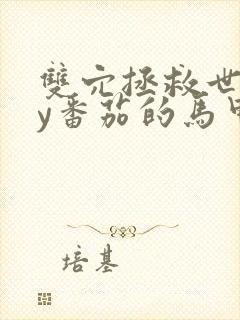 雙穴拯救世
y番茄的馬甲
培基